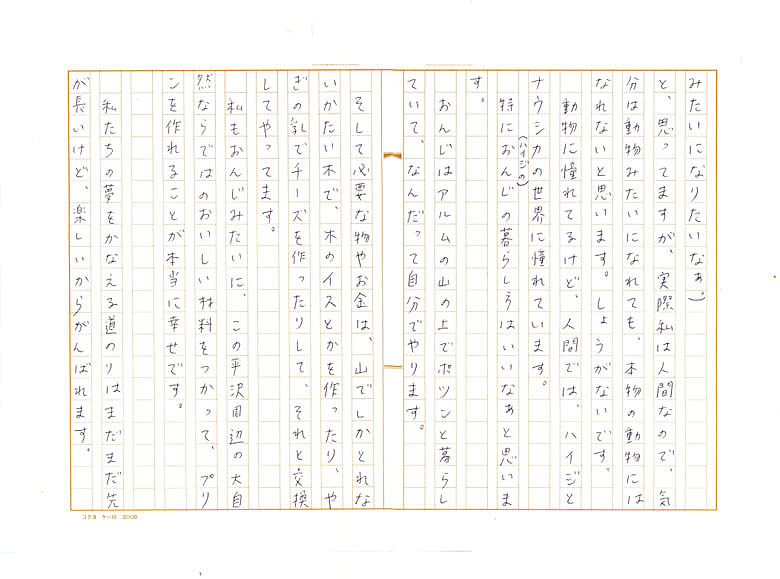 みたいになりたいなぁ。)
と、思ってますが、実際私は人間なので、気
分は動物みたいになれても、本物の動物には
なれないと思います。しょうがないです。
動物に憧れてるけど、人間では、ハイジと
ナウシカの世界に憧れています。
特に(ハイジの)おんじの暮らしうはいいなぁと思いま
す。
おんじはアルムの山の上でポツンと暮らし
ていて、なんだって自分でやります。
そして必要な物やお金は、山でしかとれな
いかたい木で、木のイスとかを作ったり、や
ぎの乳でチーズを作ったりして、それと交換
してやってます。
私もおんじみたいに、この平沢周辺の大自
然ならではのおいしい材料をつかって、プリ
ンを作れることが本当に幸せです。
私たちの夢をかなえる道のりはまだまだ先
が長いけど、楽しいからがんばれます。
コクヨ ケ-10 20×20